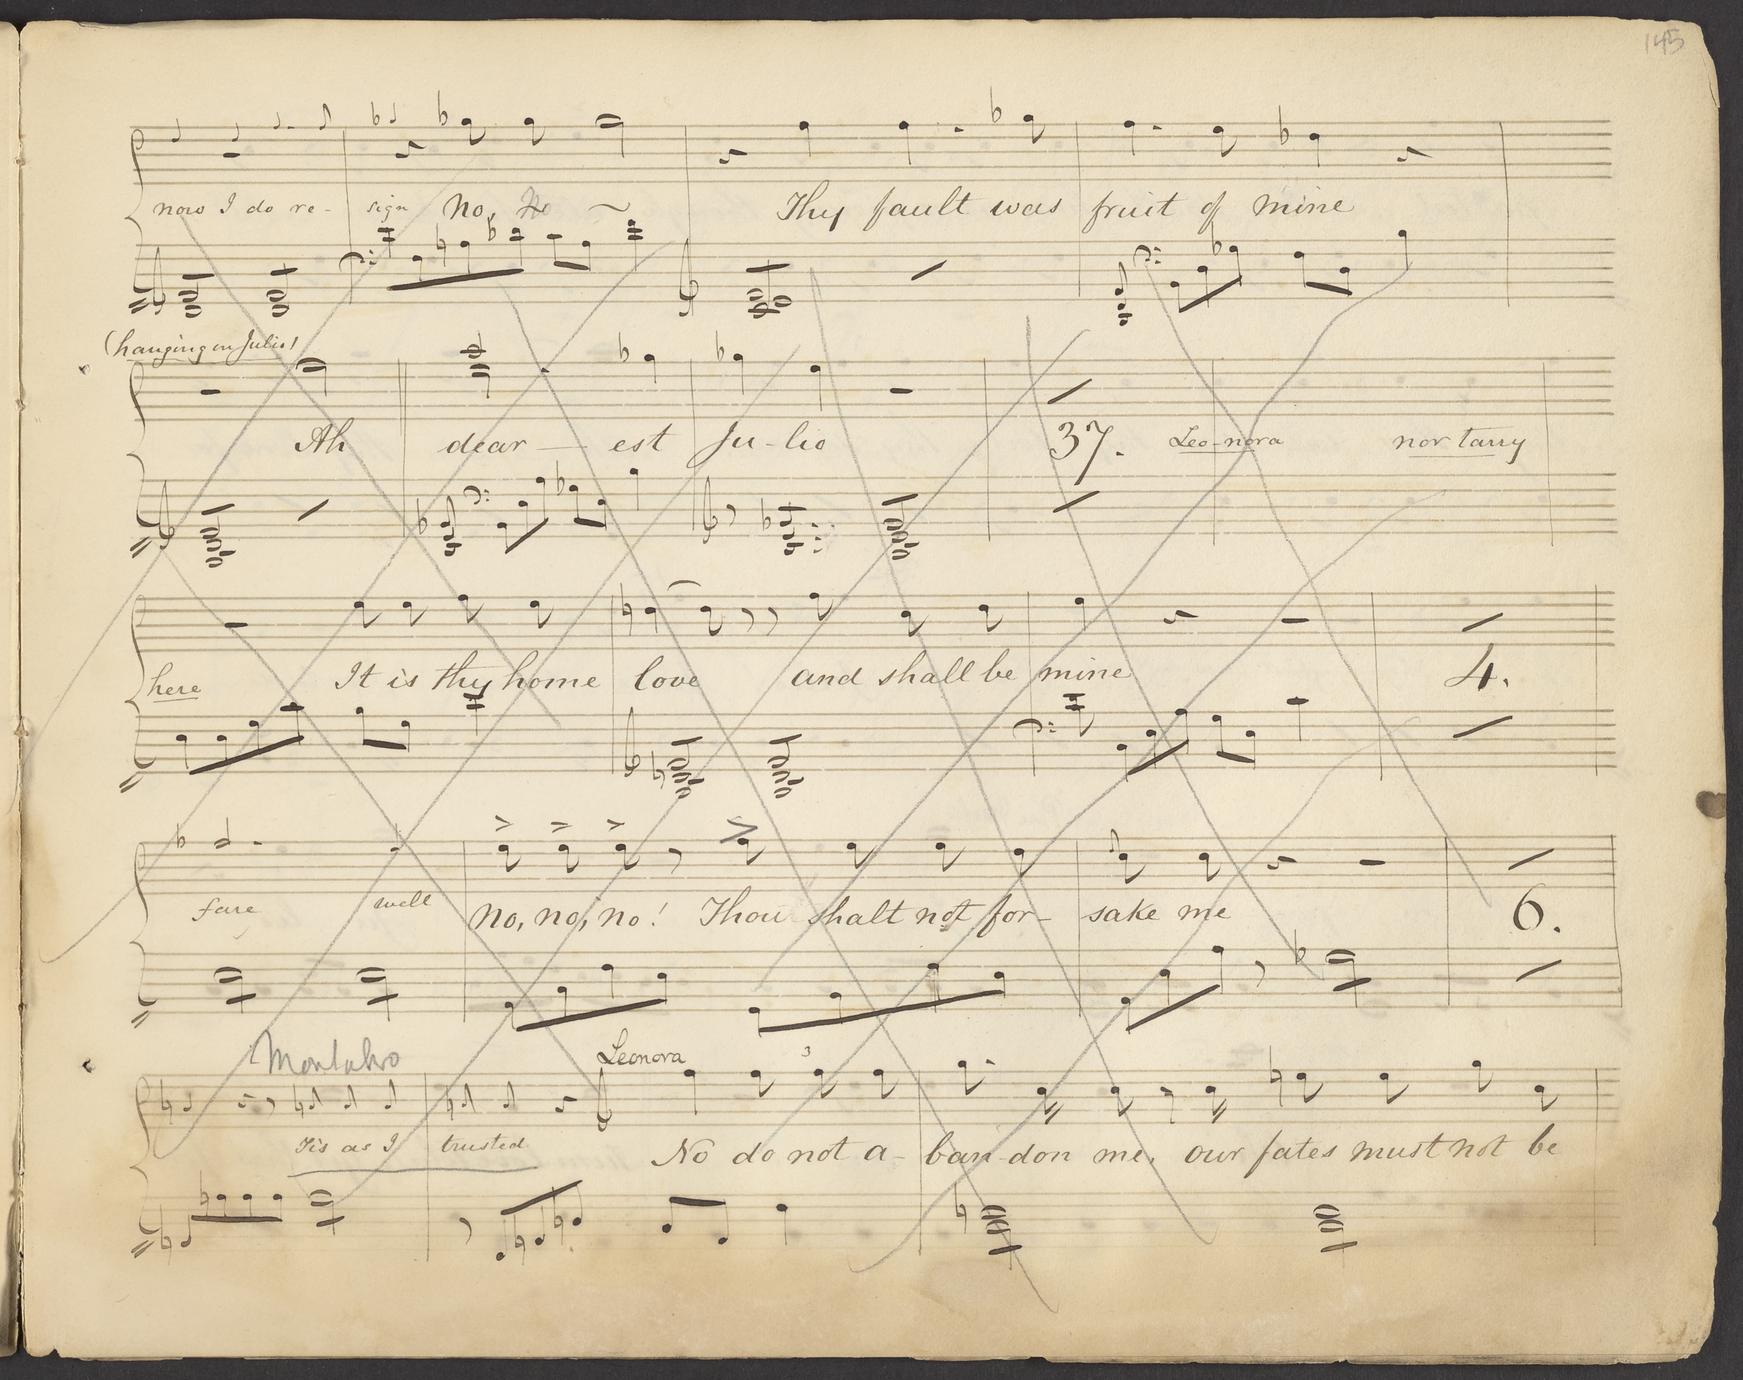 145
now I do re- sign No, No Thy fault was fruit of mine
(hanging on Julio)
Ah dear - est Ju-lio 37. Leo-nora nor tarry
here It is thy home love and shall be mine 4.
fare well No, no, no! Thou shalt not for- sake me 6.
Leonora
3
Tis as I trusted No do not a- ban-don me, our fates must not be